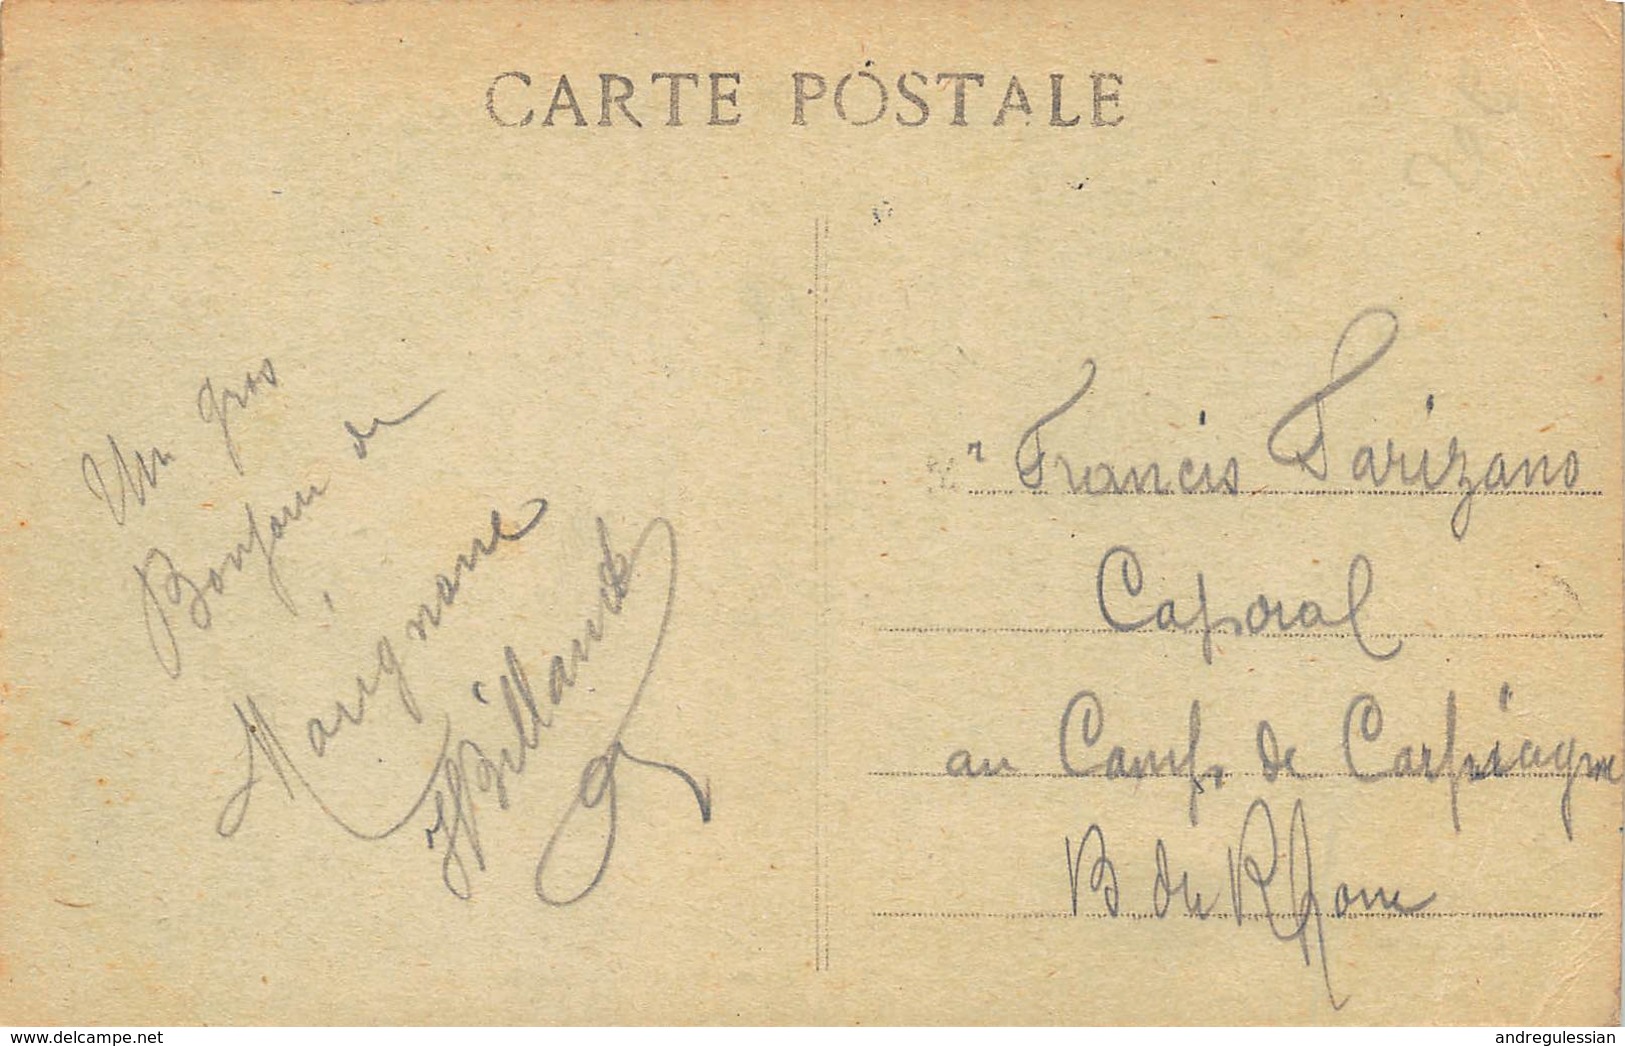 CARTE POSTALE
Un gros
Bonjour de
Marignane
Billaud
Francis Parizano
Caporal
au Camp de Carpiagne
B du Rhone
delcampe.net
andregulessian